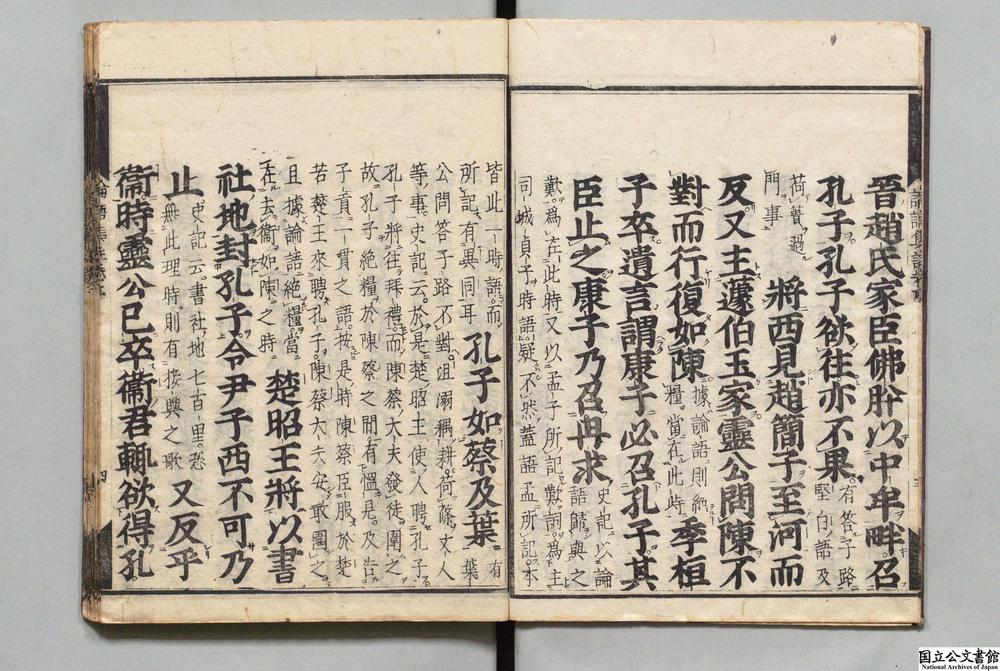 晉趙氏家臣佛肸以中牟畔召
孔子孔子欲往亦不果有答子路
堅白語及
荷蕢過
門事將西見趙簡子至河而
反又主蘧伯玉家靈公問陳不
對而行復如陳據論語則絶
糧當在此時季桓
子卒遺言謂康子必召孔子其
臣止之康子乃召冉求史記以論
語歸與之
歎爲在此時又以孟子所記歎詞爲主
司城貞子時語疑不然蓋語孟所記本
皆此一時語而
所記有異同耳孔子如蔡及葉有
葉
公問答子路不對沮溺耦耕荷蓧丈人
等事史記云於是楚昭王使人聘孔子
孔子將往拜禮而陳蔡大夫發徒圍之
故孔子絶糧於陳蔡之間有慍見及告
子貢一貫之語按是時陳蔡臣服於楚
若楚王來聘孔子陳蔡大夫安敢圍之
且據論語絶糧當
在去衞如陳之時楚昭王將以書
社地封孔子令尹子西不可乃
止史記云書社地七百里恐
無此理時則有接輿之歌又反乎
衞時靈公已卒衞君輒欲得孔
四
国立公文書館
National Archives of Japan